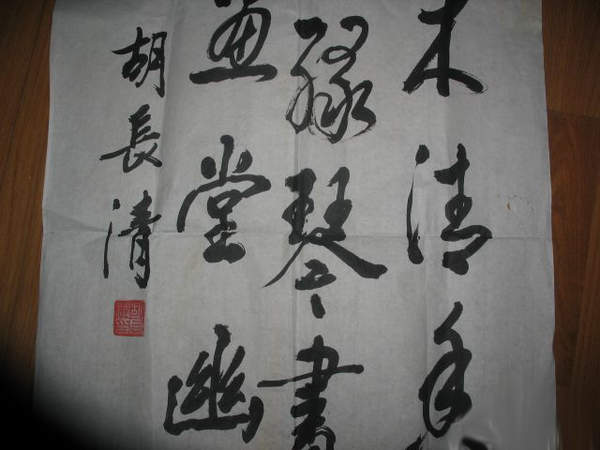 木清
琴書
画堂幽
胡長清